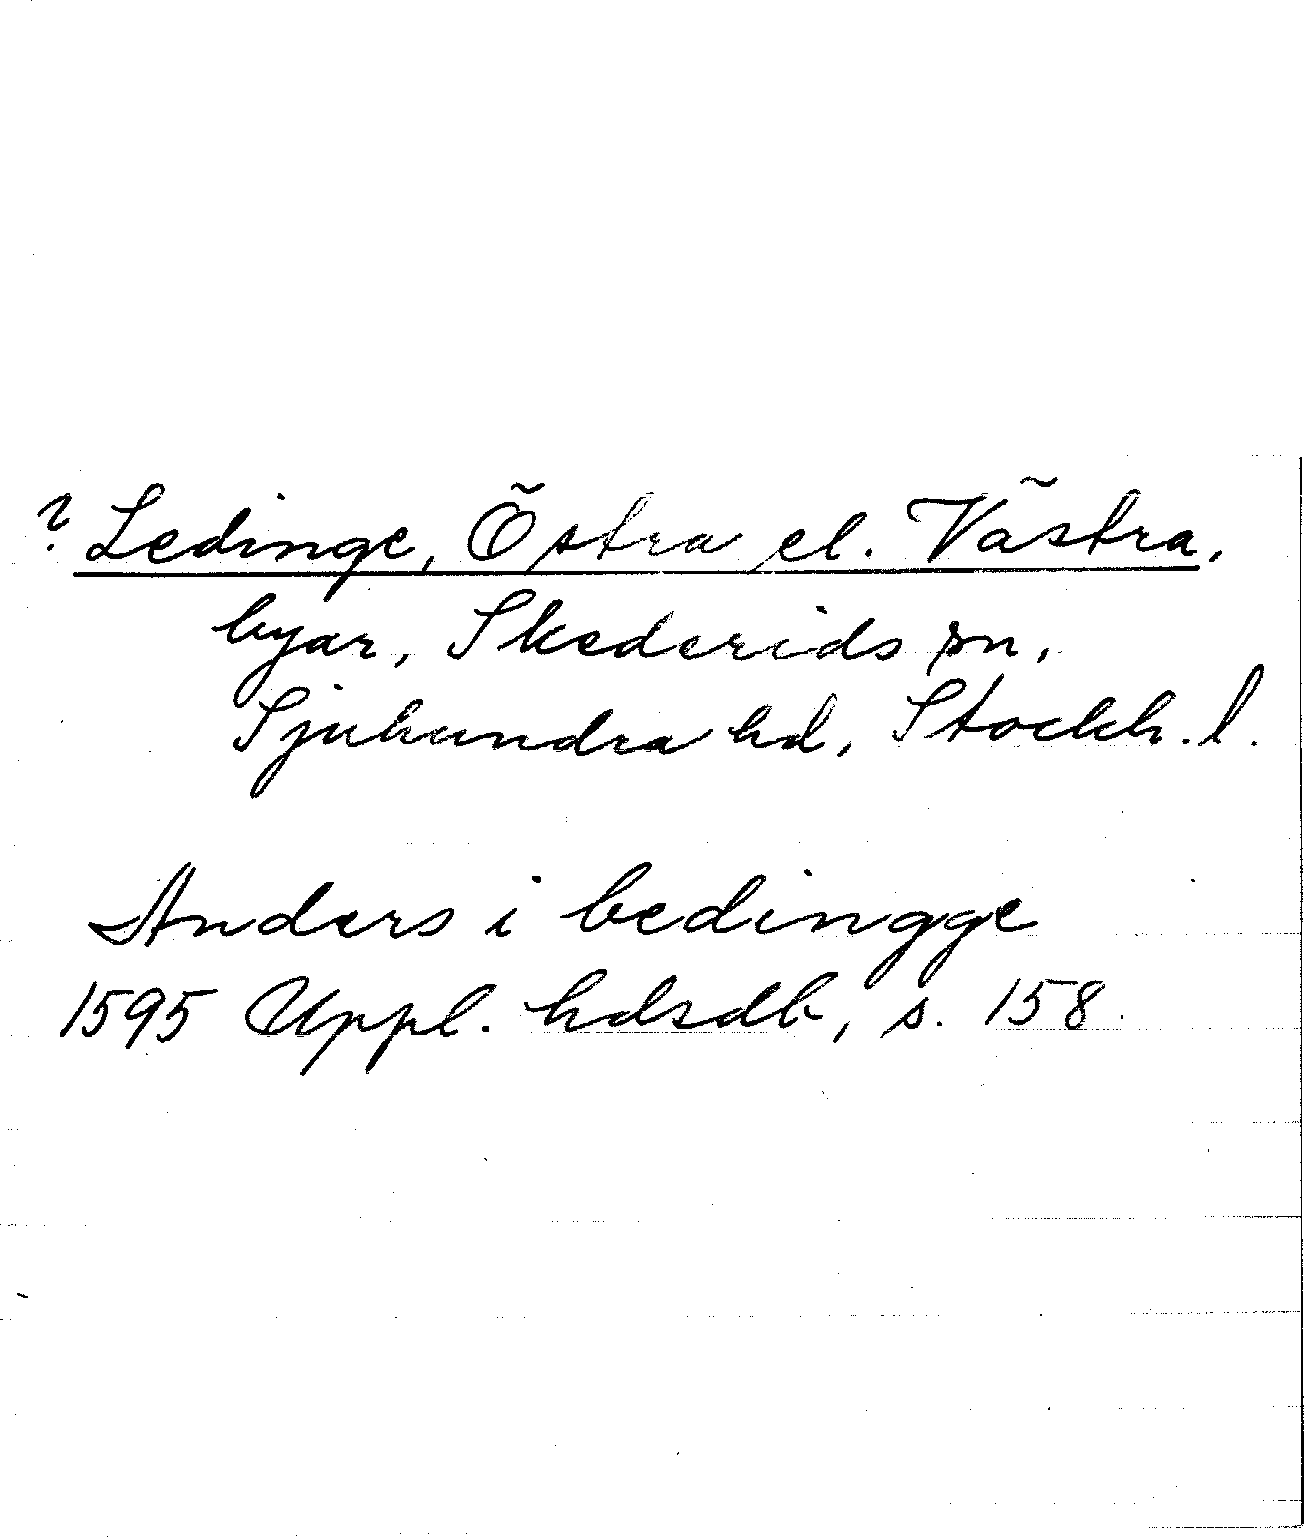 ? Ledinge, Östra el. Västra,
byar, Skederids sn,
Sjuhundra hd, Stockh. l.
Anders i bedingge
1595 Uppl. hdsdb, s. 158